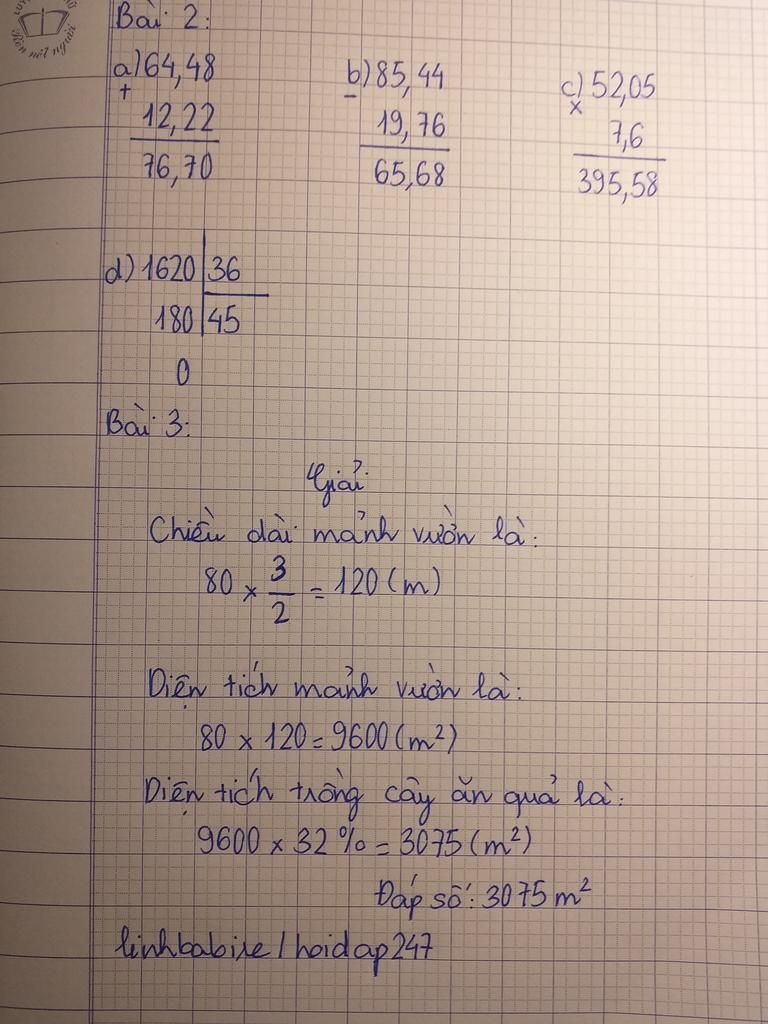 Rèn nết người
Bài 2:
a) 64,48
+
12,22
76,70
b) 85,44
-
19,76
65,68
c) 52,05
x
7,6
395,58
d) 1620 36
180 45
0
Bài 3:
Giải
Chiều dài mảnh vườn là:
80 x 3/2 = 120 (m)
Diện tích mảnh vườn là:
80 x 120 = 9600 (m²)
Diện tích trồng cây ăn quả là:
9600 x 32 % = 3075 (m²)
Đáp số: 3075 m²
linhbabixe / hoidap247